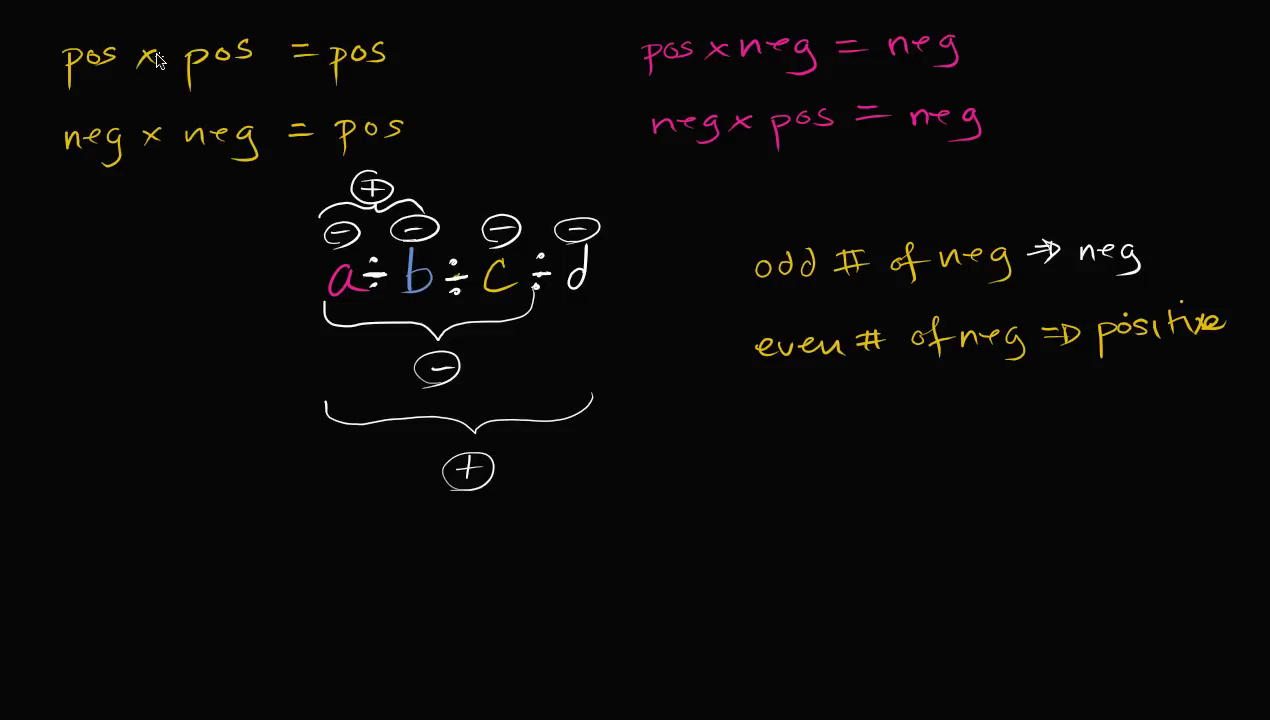 pos x pos = pos
neg x neg = pos
pos x neg = neg
neg x pos = neg
+
- - - -
a ÷ b ÷ c ÷ d
-
+
odd # of neg ⇒ neg
even # of neg ⇒ positive